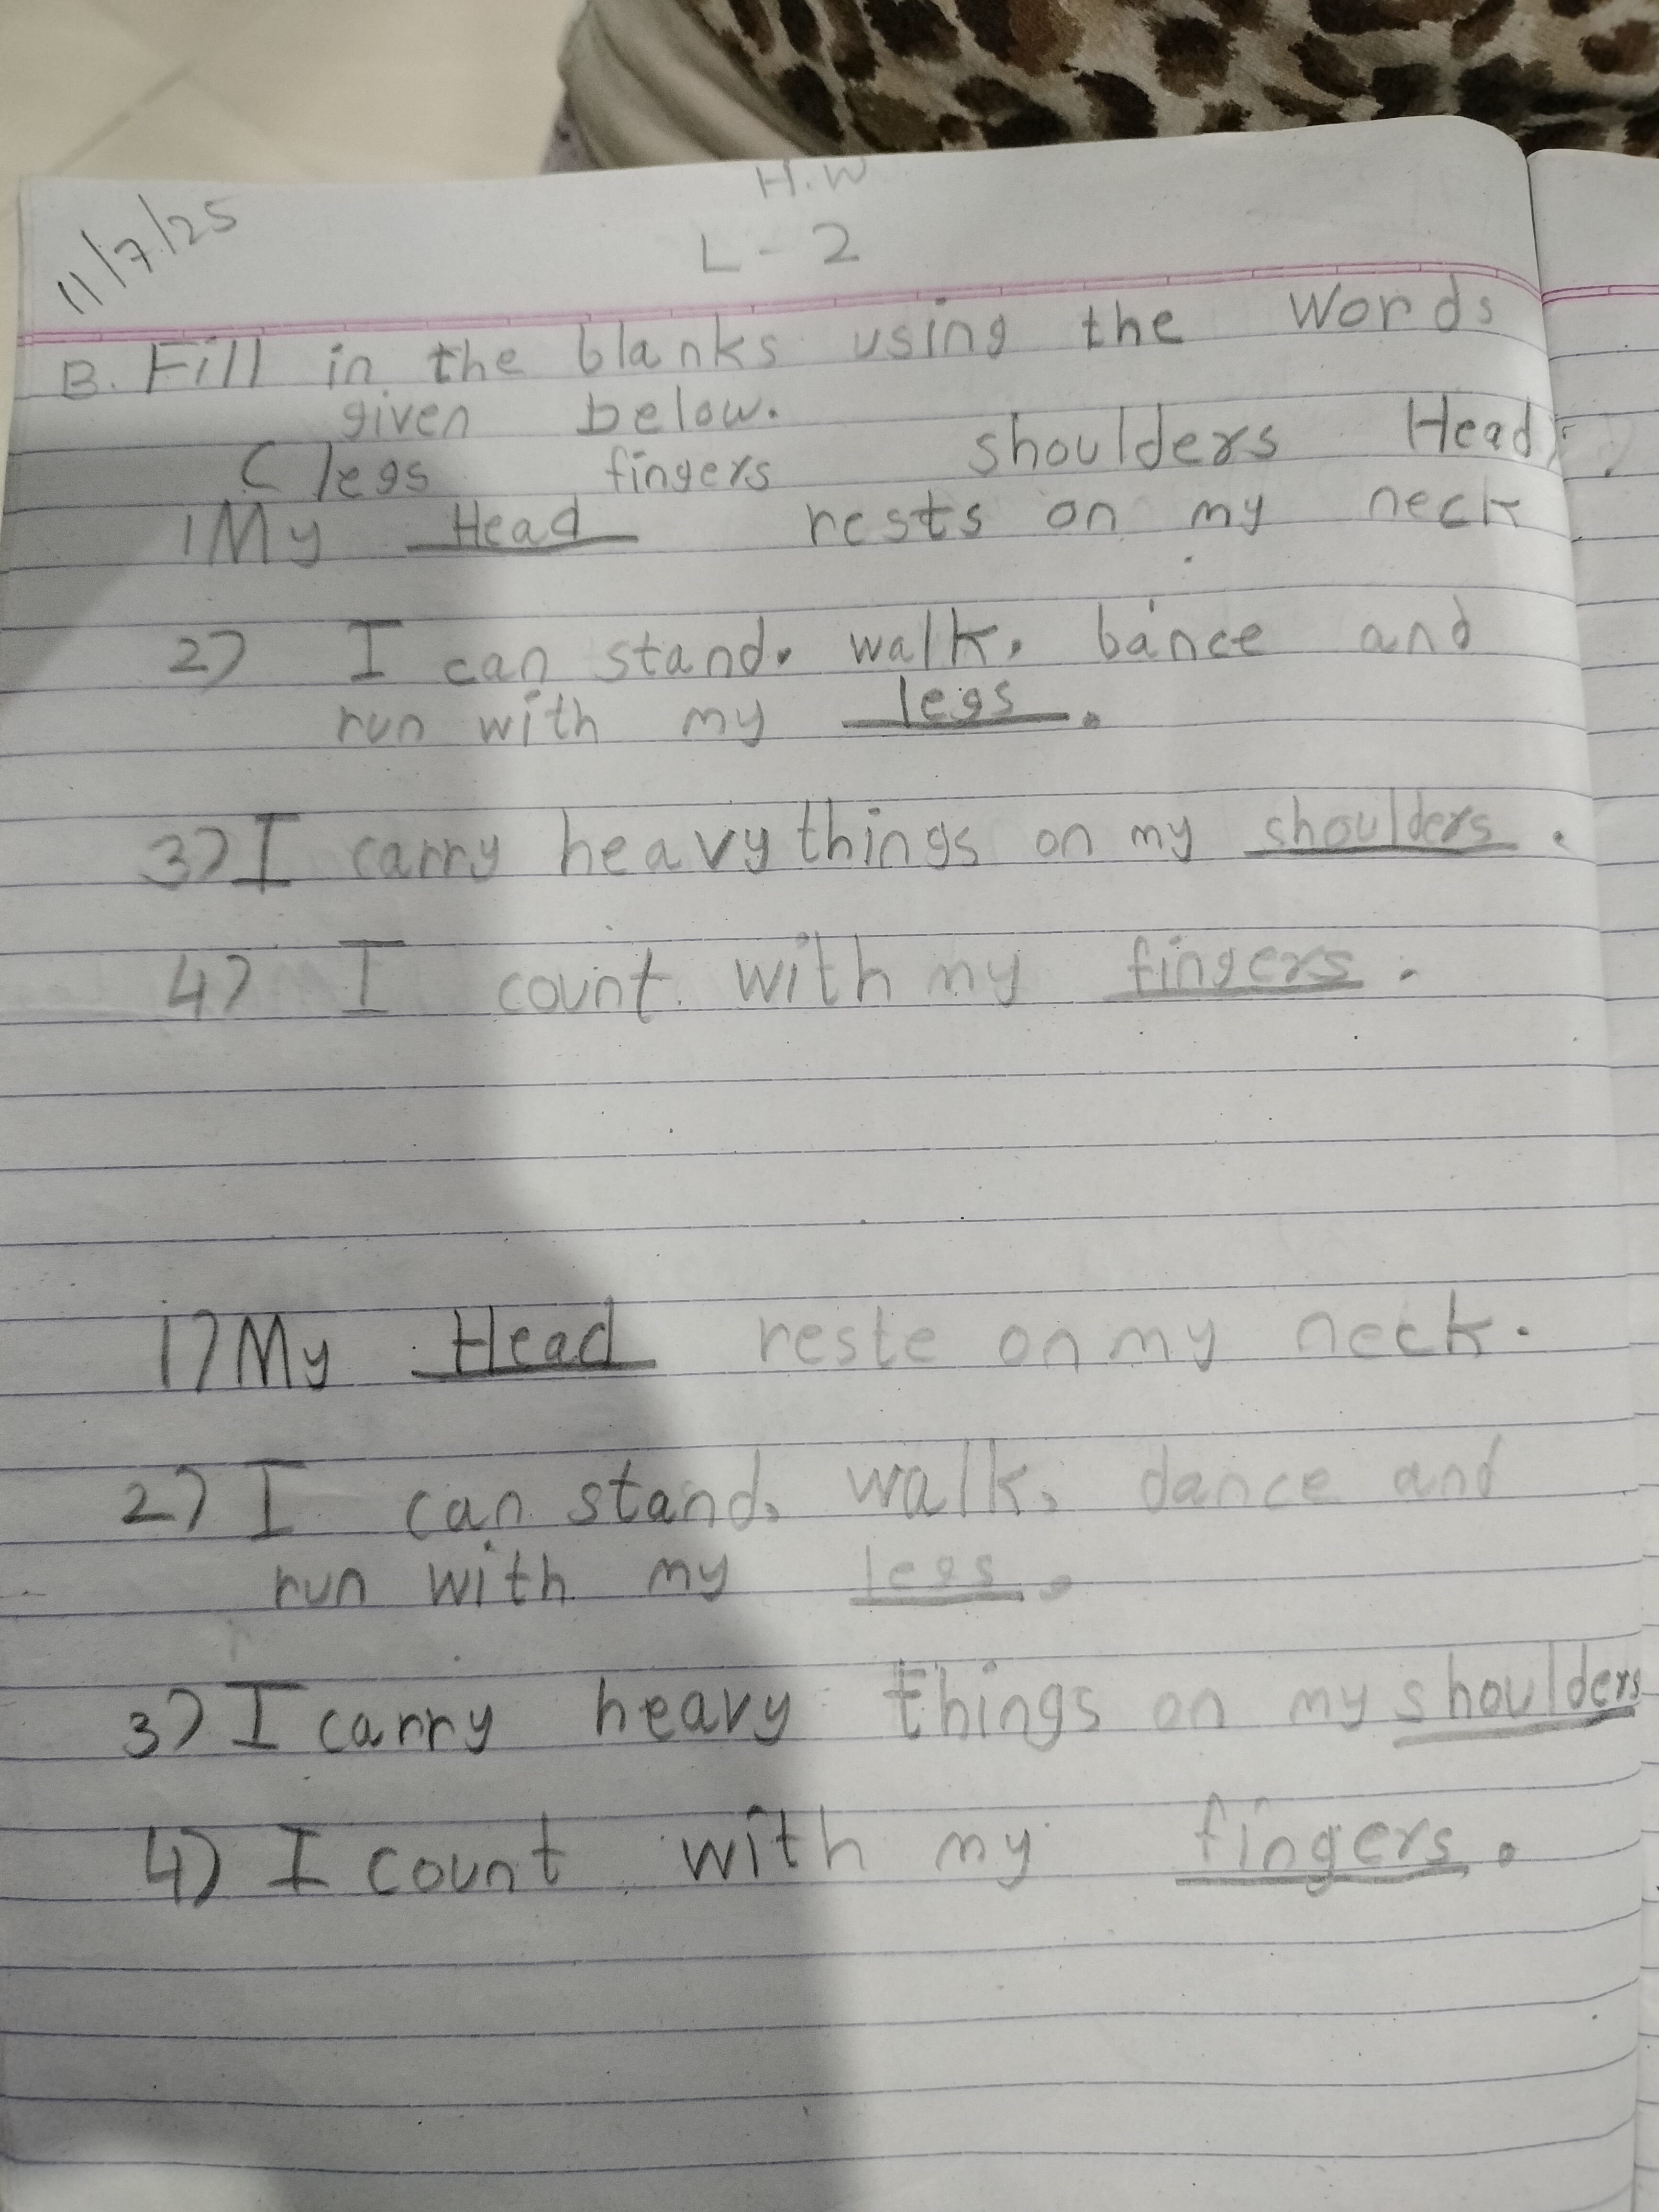 H.W
11/7/25
L - 2
B. Fill in the blanks using the words
given below.
( legs fingers shoulders Head )
1 My Head rests on my neck
2) I can stand. walk, bance and
run with my legs.
3) I carry heavy things on my shoulders.
4) I count with my fingers.
1) My Head reste on my neck.
2) I can stand, walk, dance and
run with my legs.
3) I carry heavy things on my shoulders
4) I count with my fingers.